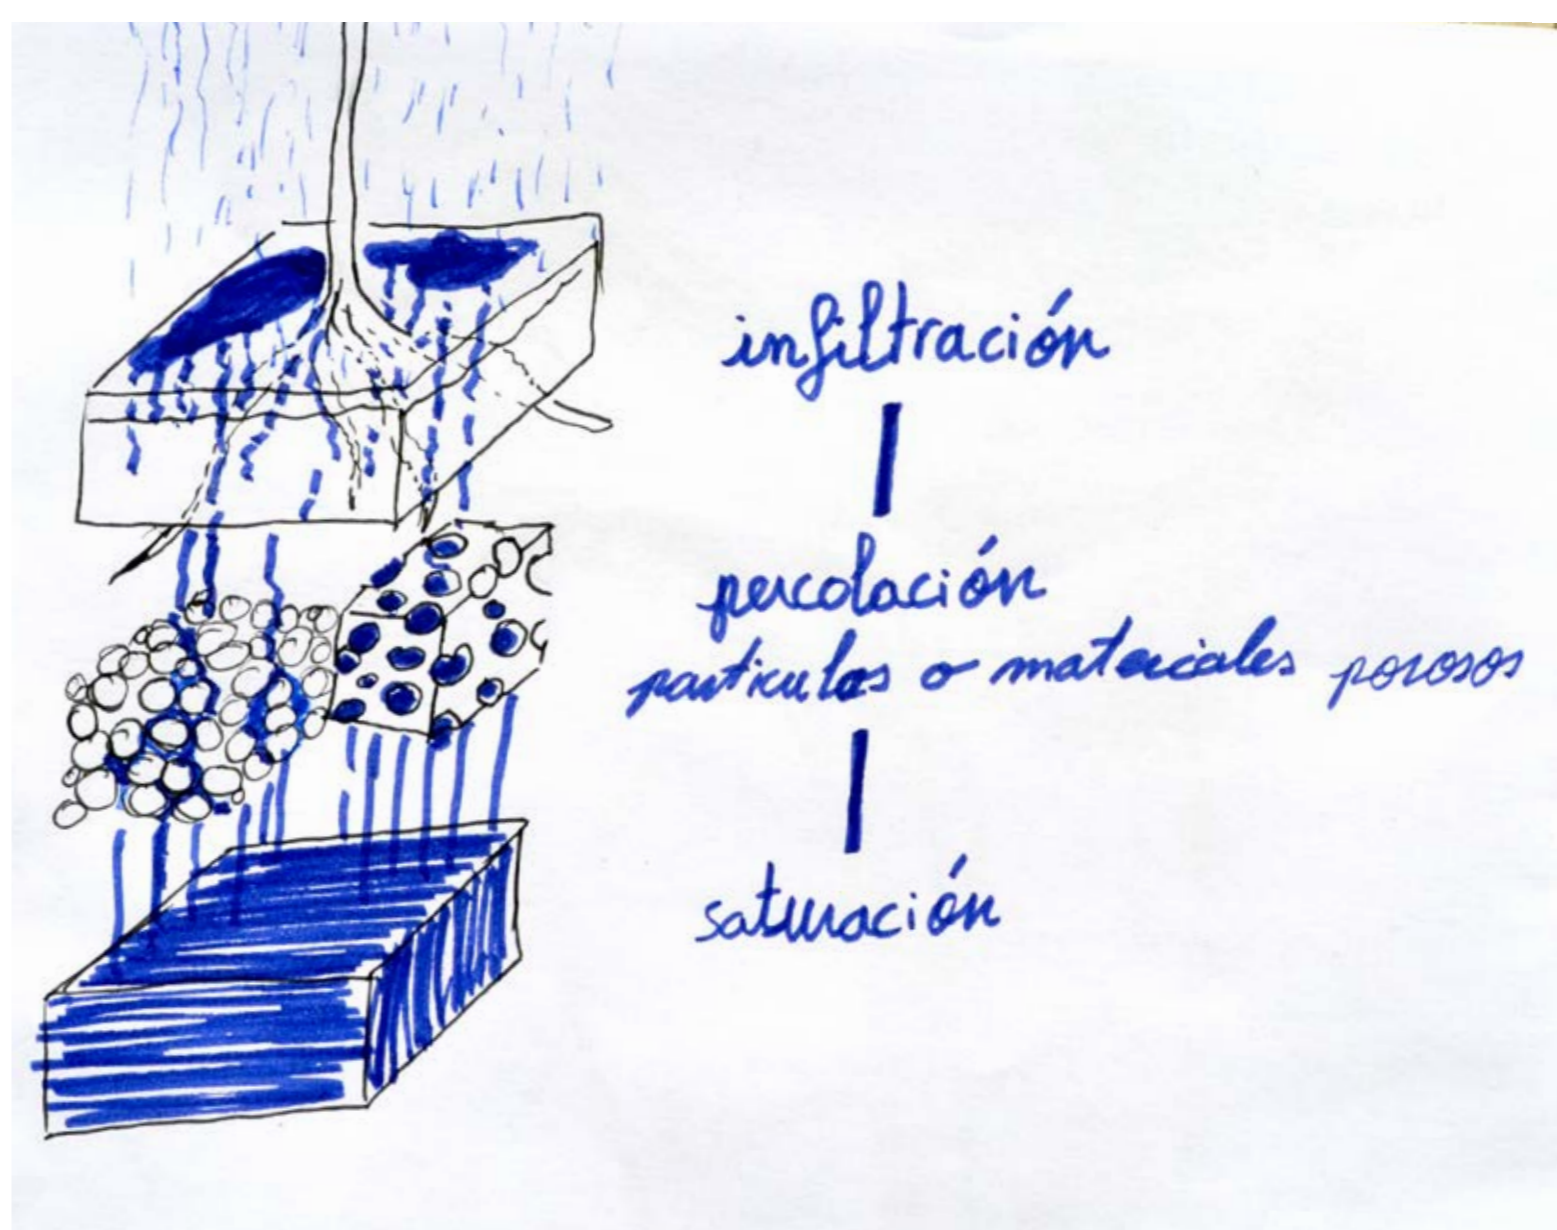 infiltración
percolación
particulas o materiales porosos
saturación